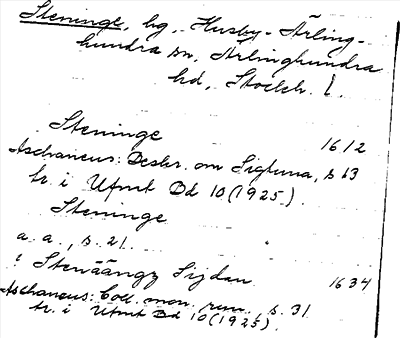 Steninge, hg., Husby-Ärling-
hundra sn, Ärlinghundra
hd, Stockh. l.
Steninge 1612
Aschaneus: Beskr. om Sigtuna, s 63
tr. i Ufmt Bd 10 (1925).
Steninge
a. a., s. 21.
i Stenääng Sijdan 1634
Aschaneus: Coll. mon. run., s. 31
tr. i Ufmt Bd 10 (1925).